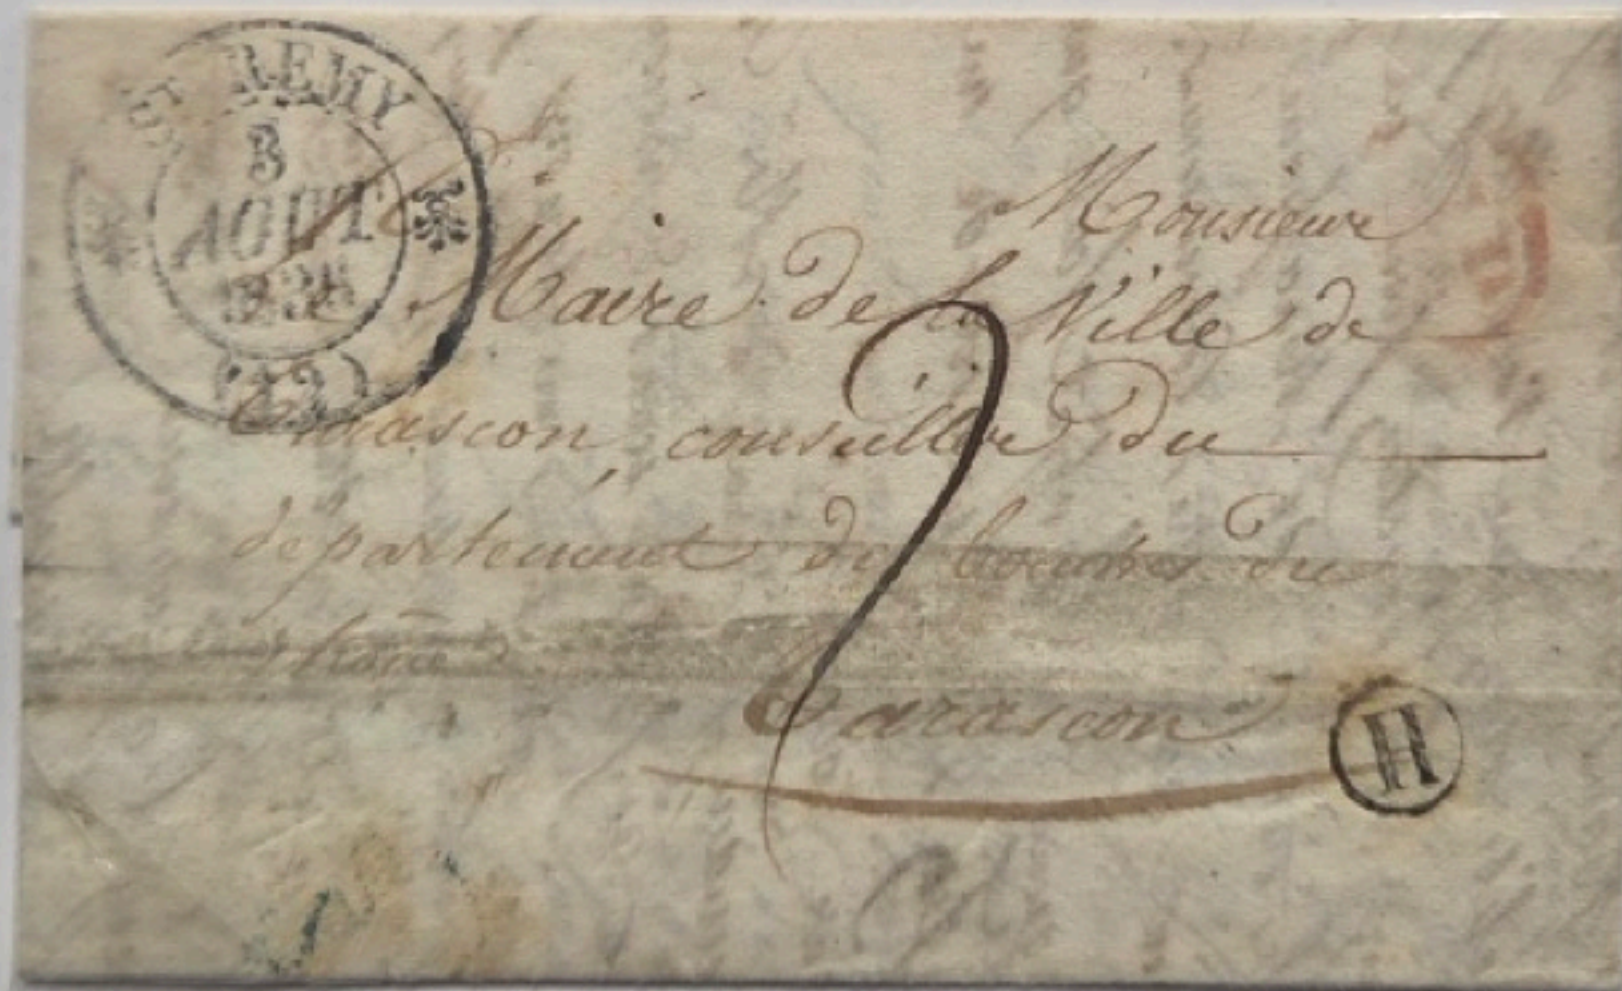 ST REMY
3
AOUT
1838
(12)
Monsieur
Maire de la Ville de
Tarascon, conseiller du
département des bouches du
rhône
2
Tarascon
H